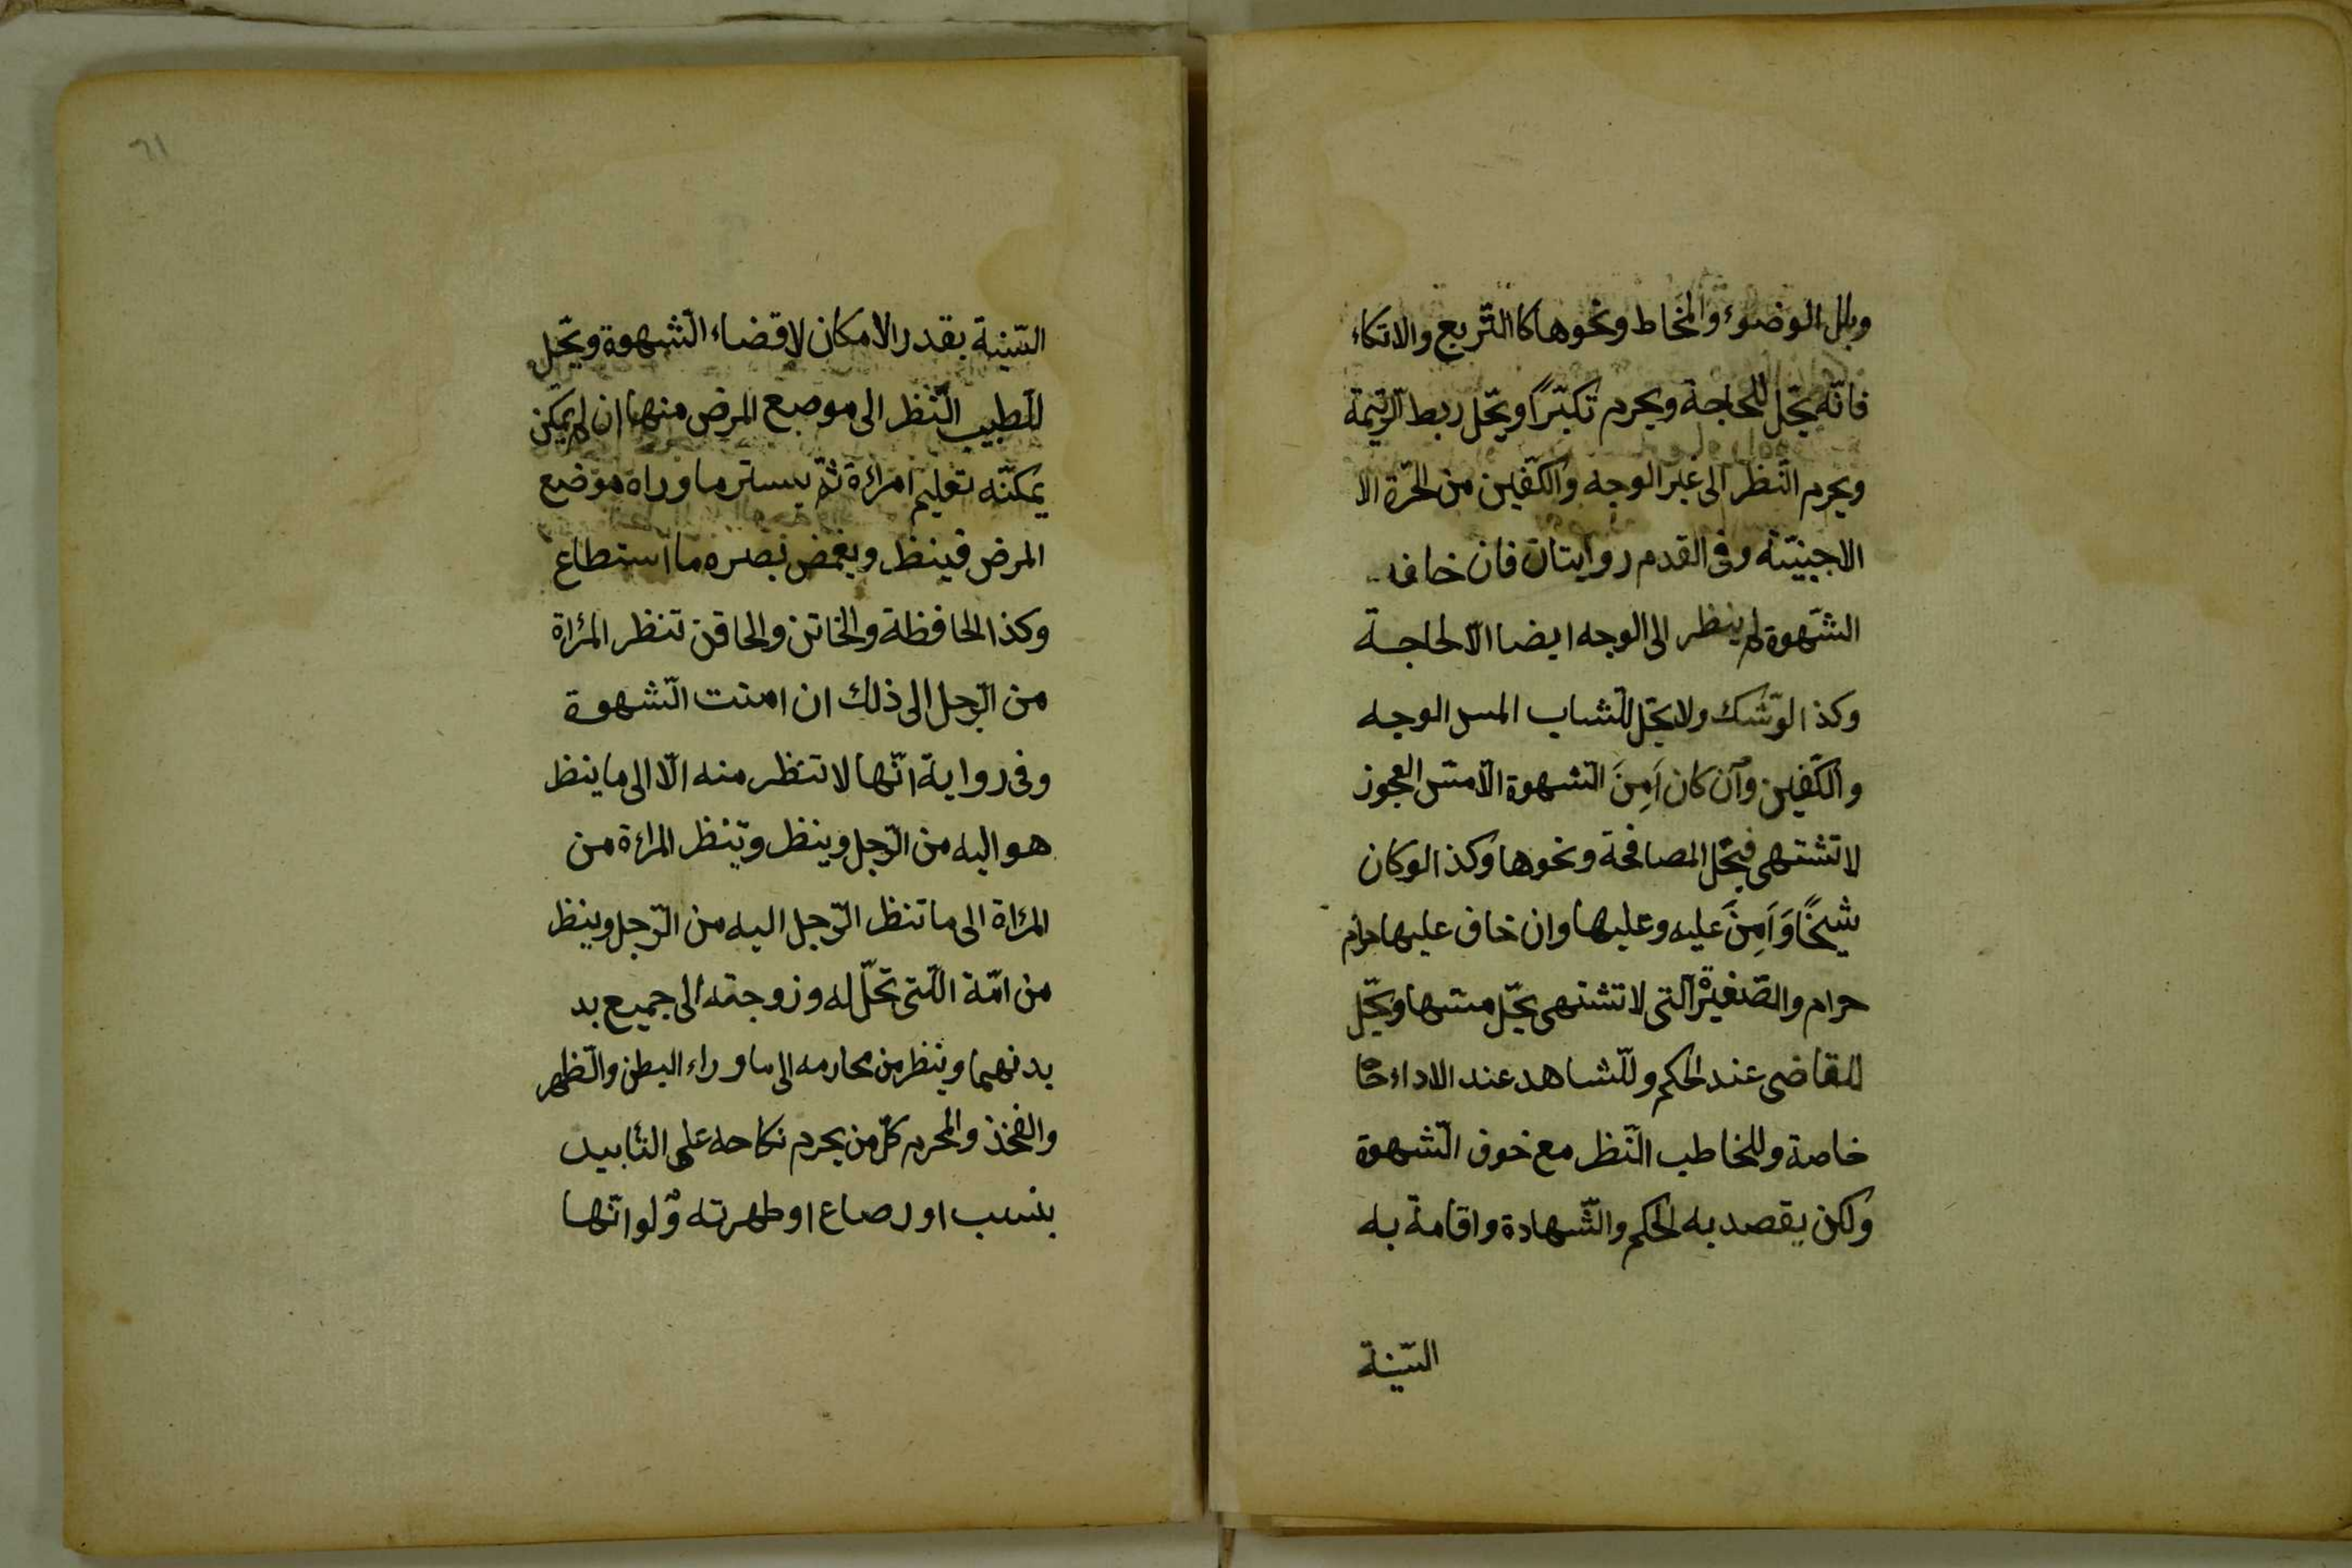 وبلل الوضوء والمخاط ونحوها كالتّربع والاتكاء
فانّه يحّل للحاجة ويحرم تكبّرًا ويحّل ربط الرّتيمة
ويحرم النّظر الى غير الوجه والكّفين من الحّرة الا
الاجنبيّة وفى القدم روايتان فان خاف
الشّهوة لم ينظر الى الوجه ايضا الّا لحاجة
وكذا لو شّك ولا يحّل للّشاب المس الوجه
والكّفين وان كان اَمِنَ الّشهوة الّا مسّ العجوز
لا تشتهى فيحّل المصافحة ونحوها وكذا لو كان
شيخًا وَاَمِنَ عليه وعليها وان خاف عليها حرام
حرام والصّغيرة الّتى لا تشتهى يحّل مسّها ويحّل
للقاضى عند الحكم وللّشاهد عند الاداء خا
خاصة وللخاطب النّظر مع خوف الّشهوة
ولكن يقصد به الحكم والشّهادة واقامة به
السّنية
٦١
السّنية بقدر الامكان لا قضاء الّشهوة ويحّل
للّطبيب النّظر الى موضع المرض منها ان لم يمكن
يمكنّه تعليم امراءة ثمّ يستر ما وراه موضع
المرض فينظر ويغمض بصره ما استطاع
وكذا الحافظة والخاتن والحاقن تنظر المرٔاة
من الّرجل الى ذلك ان امنت الّشهوة
وفى رواية انّها لا تنظر منه الّا الى ما ينظر
هو اليه من الّرجل وينظر وتنظر المراءة من
المرٔاة الى ما تنظر الرّجل اليه من الرّجل وينظر
من امّة الّتى تحّل له وزوجته الى جميع بد
بدنهما وينظر من محارمه الى ما وراء البطن والّظهر
والفخذ والمحرم كلّ من يحرم نكاحه على التٔابيد
بنسب او رصاع او طهرته ولو انّها